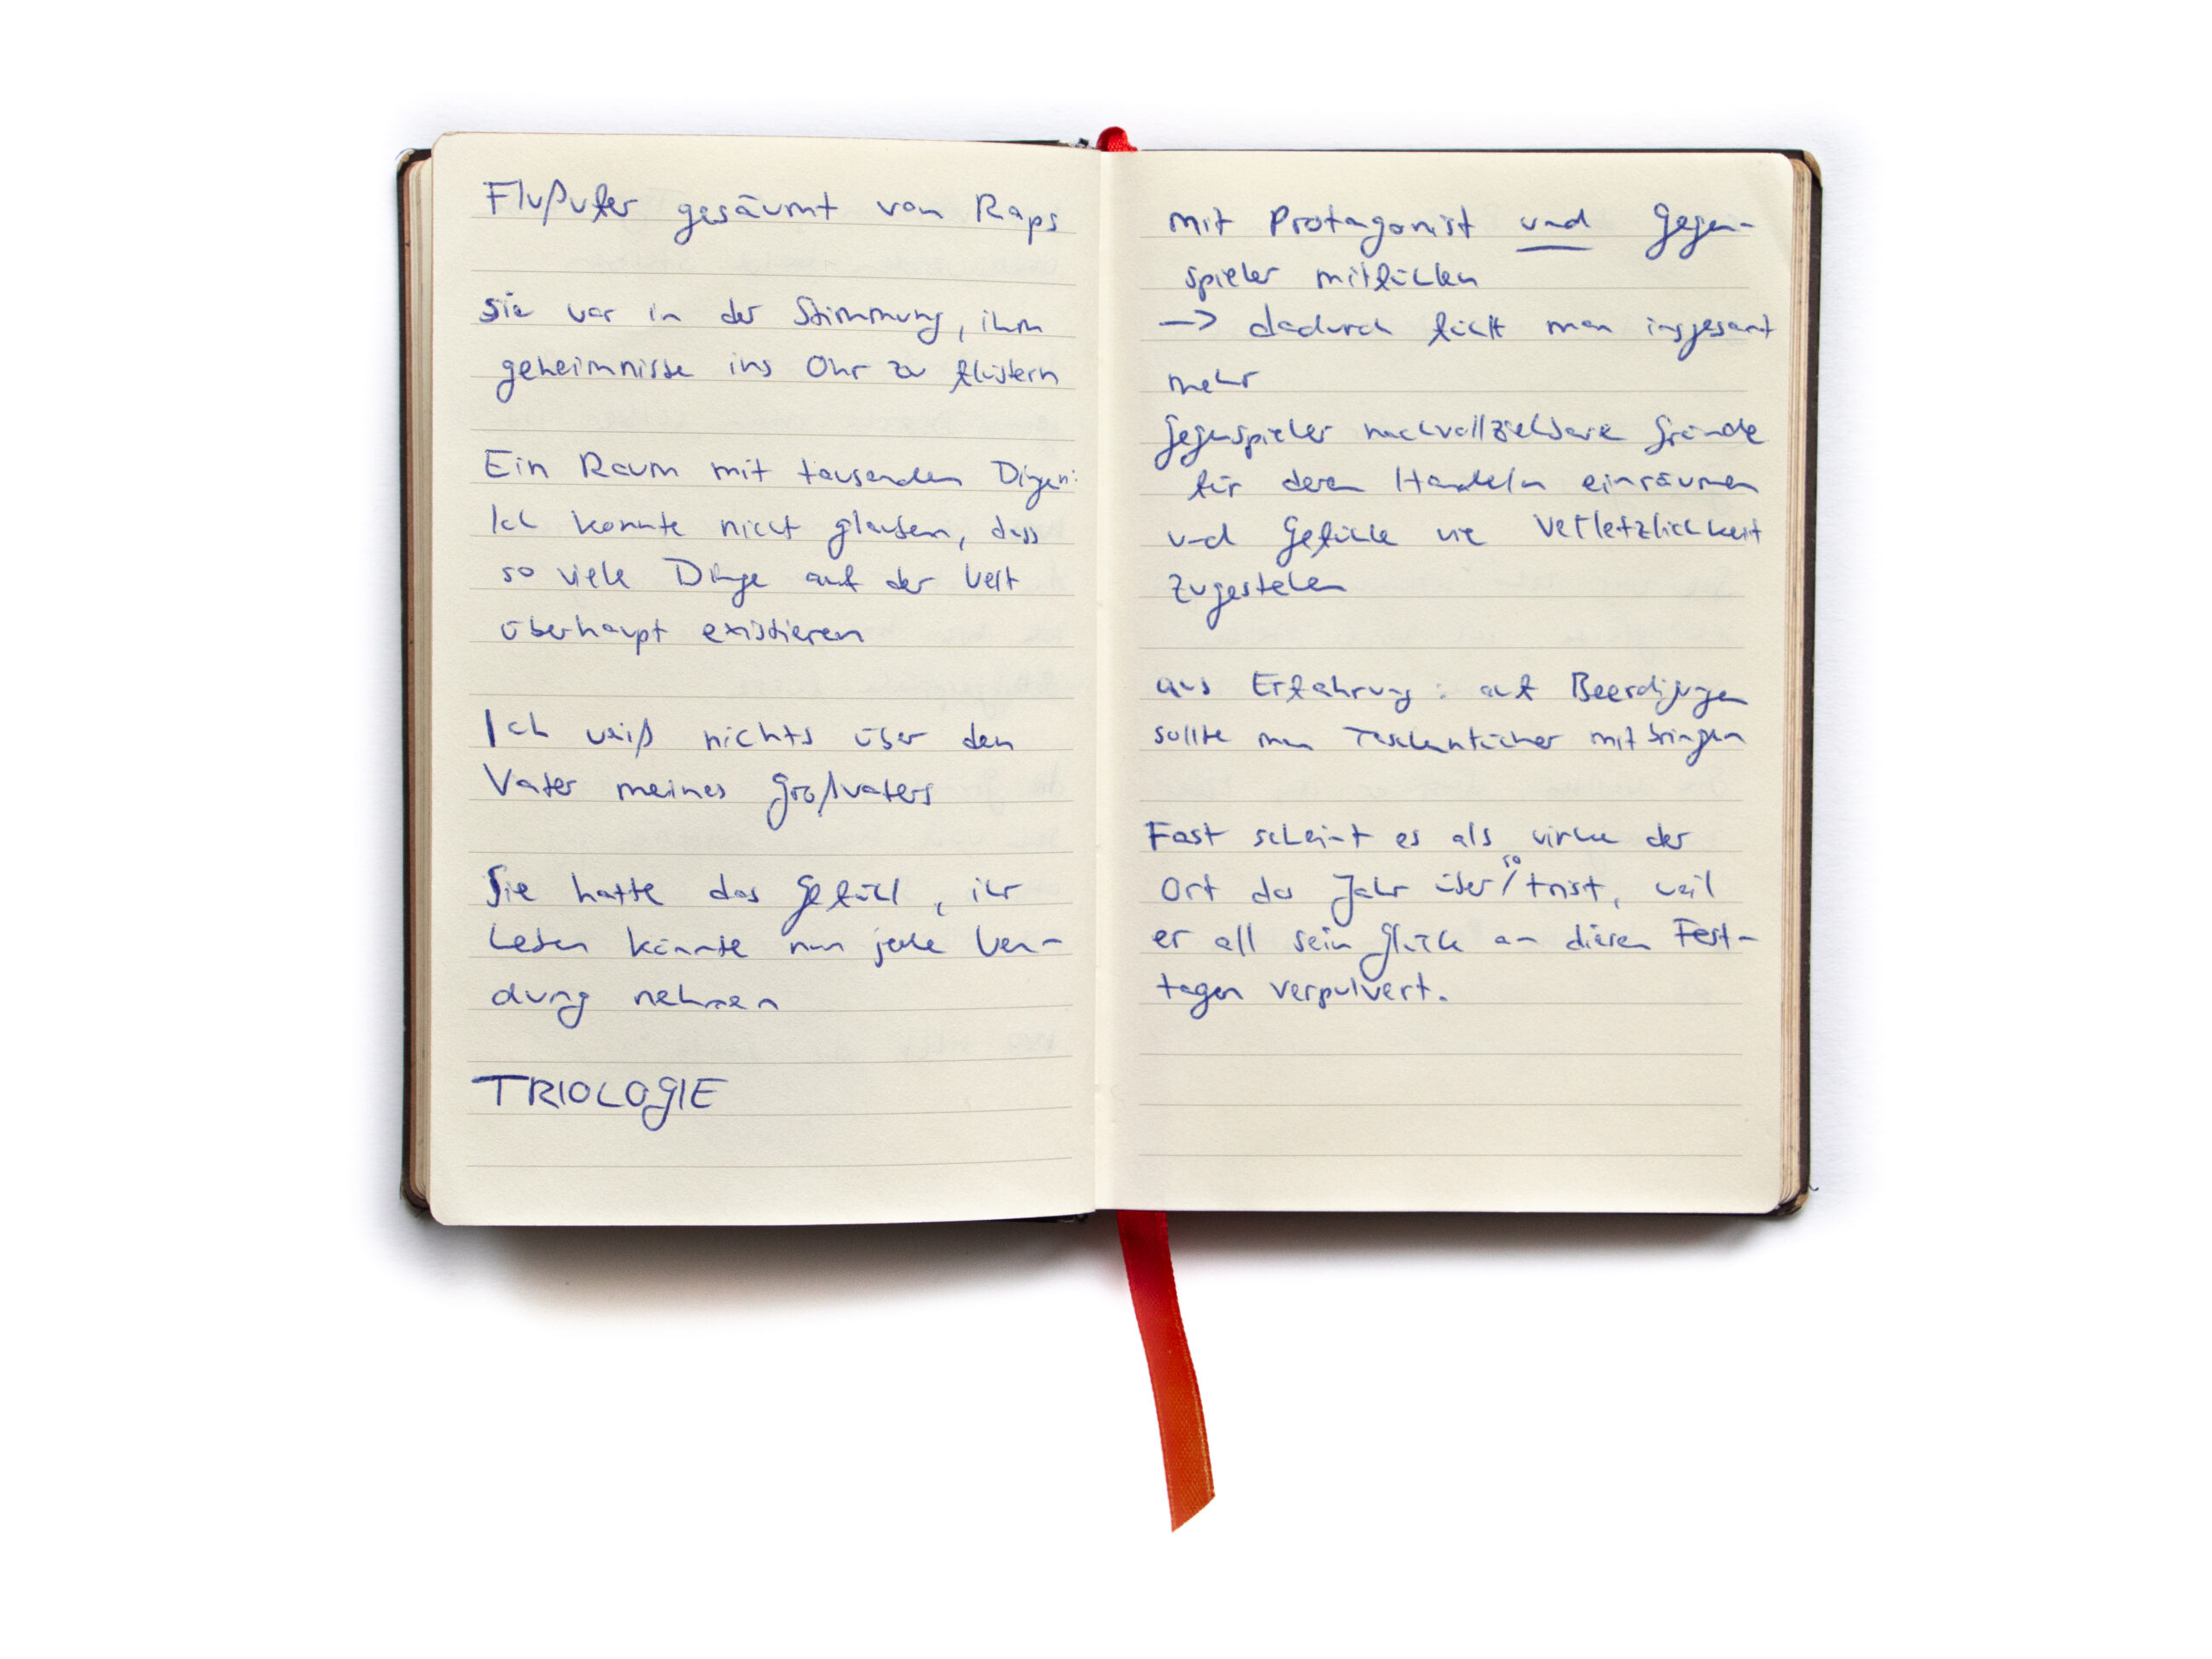 Flußufer gesäumt von Raps
Sie war in der Stimmung, ihm
geheimnisse ins Ohr zu flüstern
Ein Raum mit tausenden Dingen:
Ich konnte nicht glauben, dass
so viele Dinge auf der Welt
überhaupt existieren
Ich weiß nichts über den
Vater meines Großvaters
Sie hatte das Gefühl, ihr
Leben könnte nun jede Wen-
dung nehmen
TRIOLOGIE
mit Protagonist und Gegen-
spieler mitfühlen
-> dadurch fühlt man insgesamt
mehr
Gegenspieler nachvollziehbare Gründe
für deren Handeln einräumen
und Gefühle wie Verletzlichkeit
zugestehen
aus Erfahrung: auf Beerdigungen
sollte man Taschentücher mitbringen
Fast scheint es als wirke der
Ort das Jahr über so trist, weil
er all sein Glück an diesen Fest-
tagen verpulvert.